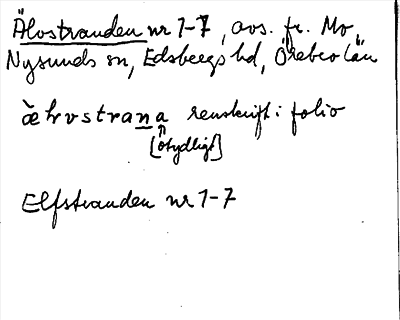 Älvstranden nr 1-7, avs. fr. Mo,
Nysunds sn, Edsbergs hd, Örebro län
ælvstrana renskrift i folio
[otydligt]
Elfstranden nr 1-7